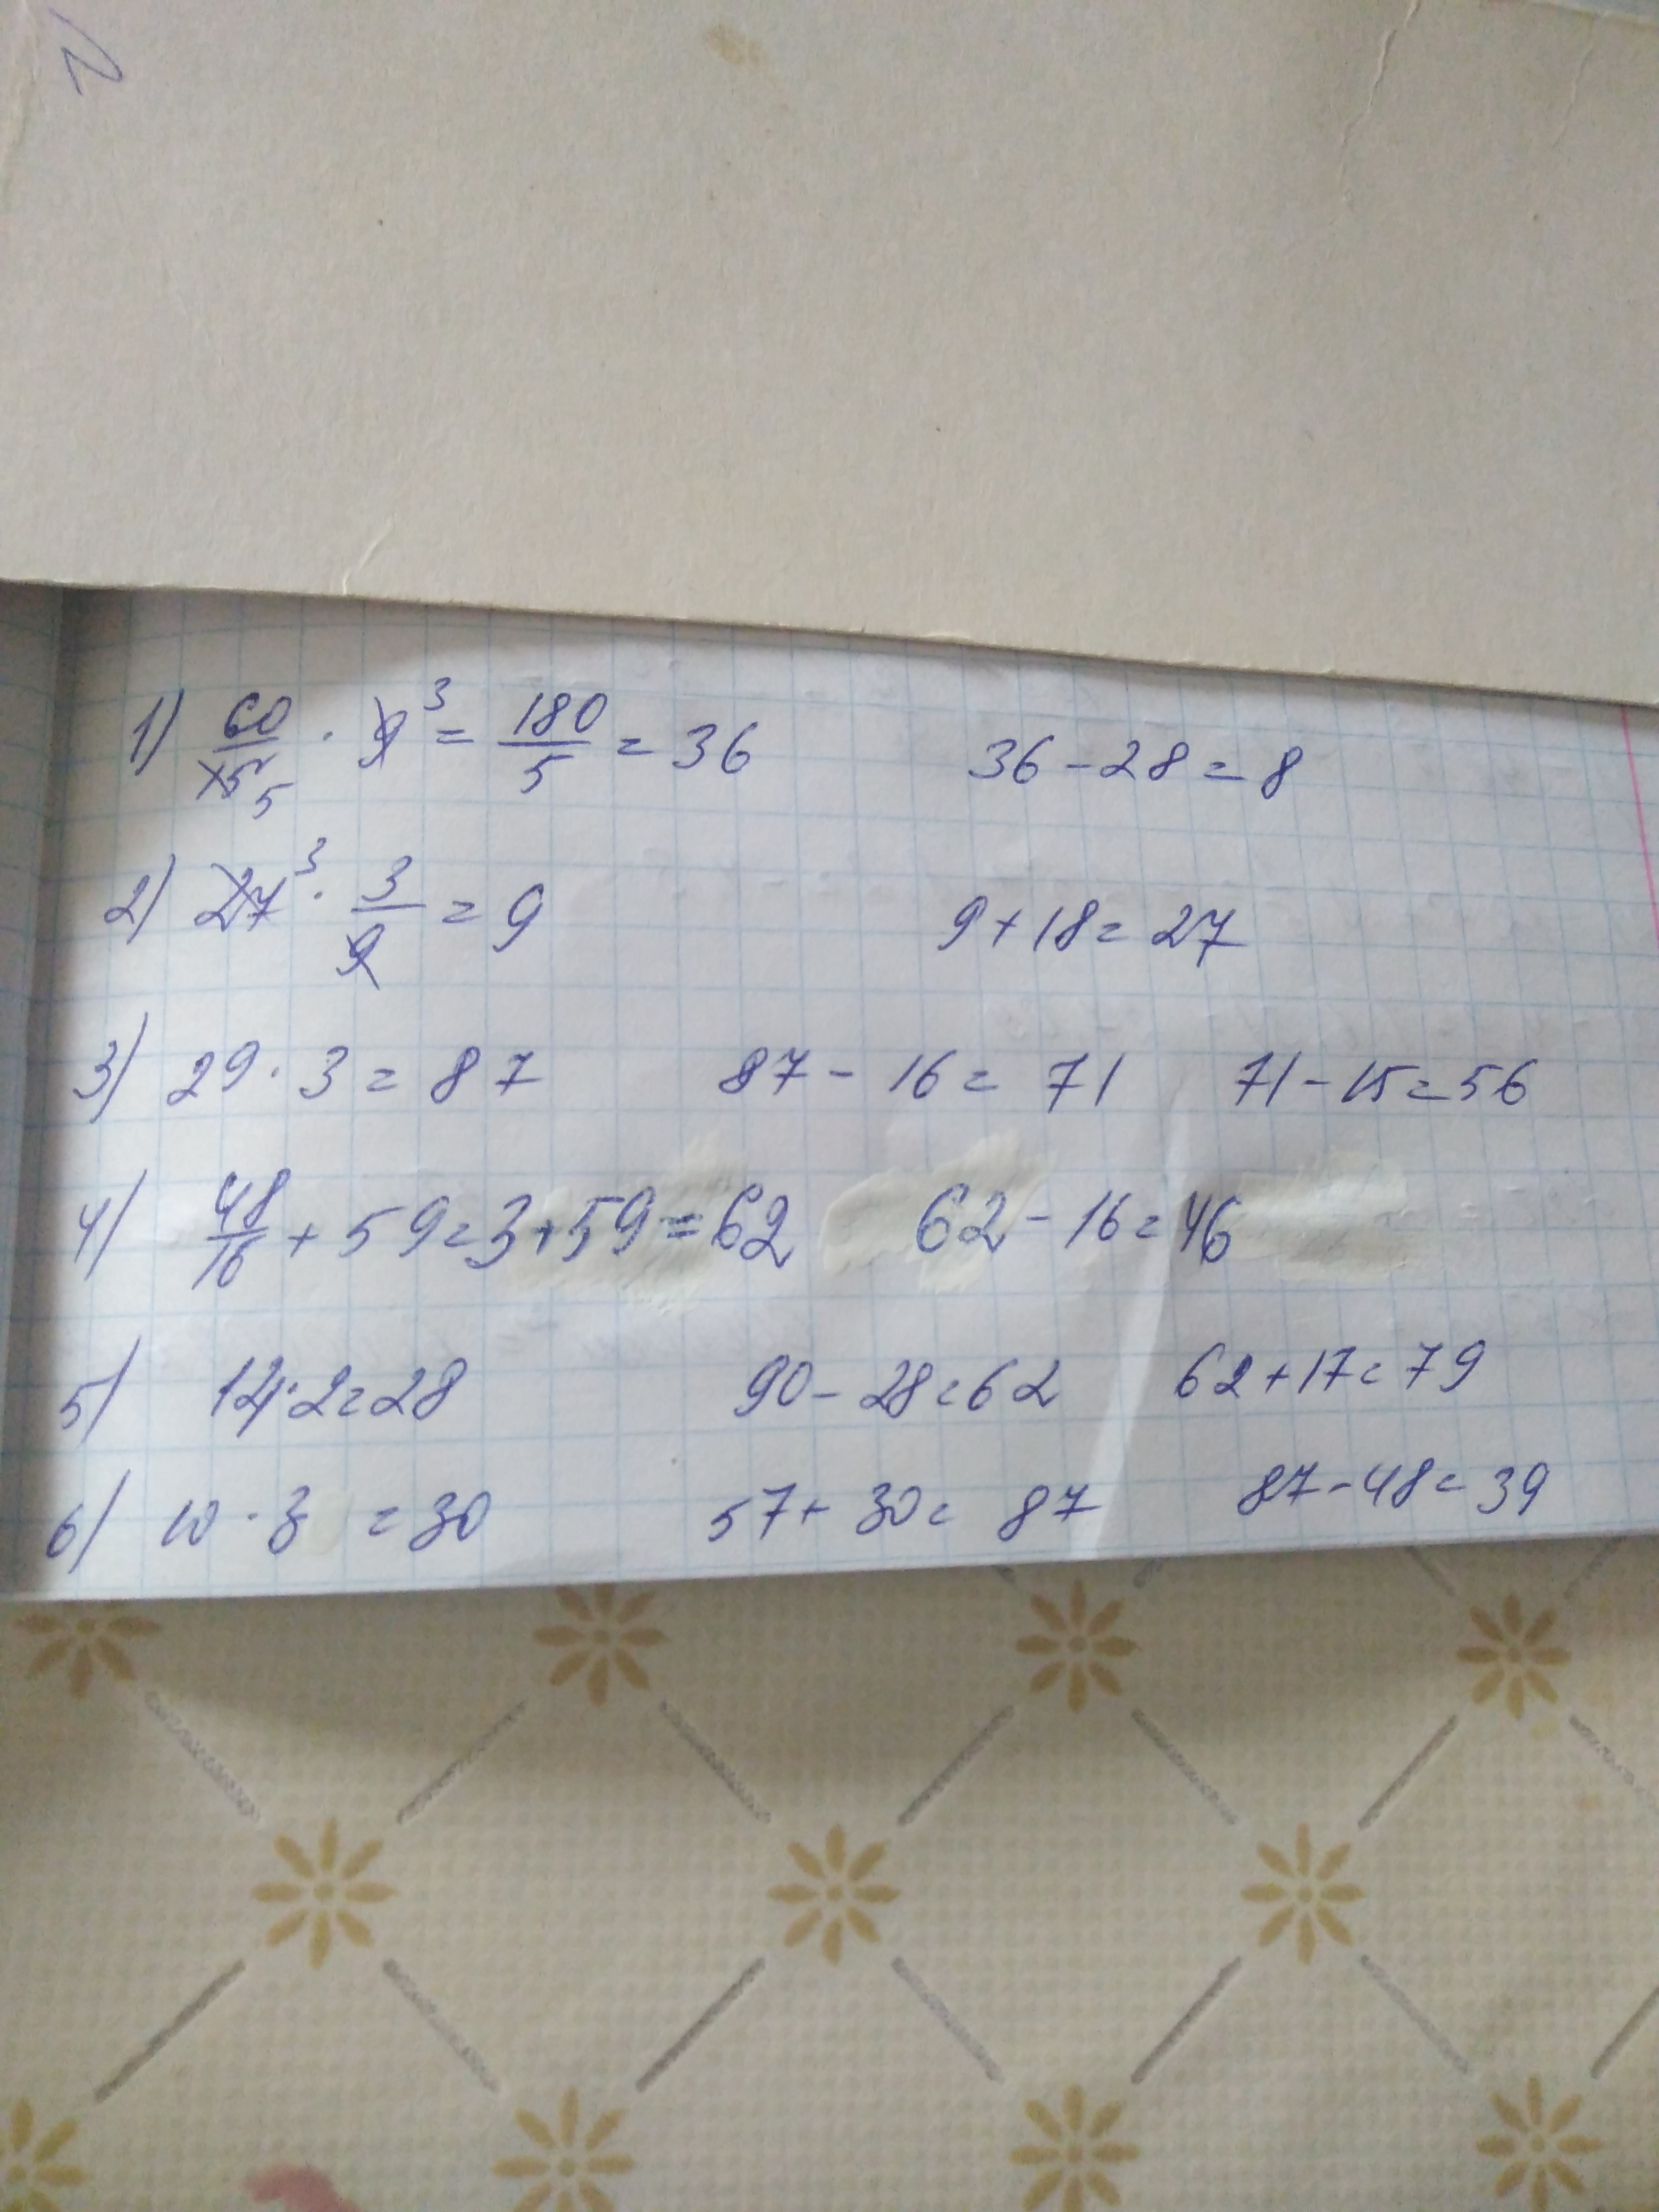 N
1) 60/15 5 · 9 3 = 180/5 = 36 36 - 28 = 8
2) 27 3 · 3/9 = 9 9 + 18 = 27
3) 29 · 3 = 87 87 - 16 = 71 71 - 15 = 56
4) 48/16 + 59 = 3 + 59 = 62 62 - 16 = 46
5) 14 · 2 = 28 90 - 28 = 62 62 + 17 = 79
6) 10 · 3 = 30 57 + 30 = 87 87 - 48 = 39